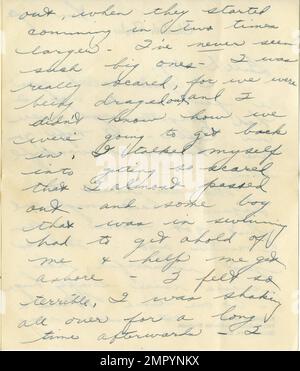 out, when they started
comming in two times
larger - I've never seen
such big ones - I was
really scared, for we were
being dragedout and I
didn't know how we
were going to get back
in, I talked myself
into geting so scared
that I almost passed
out - and some boy
that was in swiming
had to get ahold of
me & help me get
ashore - I felt so
terrible, I was shaking
all over for a long
time afterwards - I
alamy
Image ID: MRPYNKX
www.alamy.com